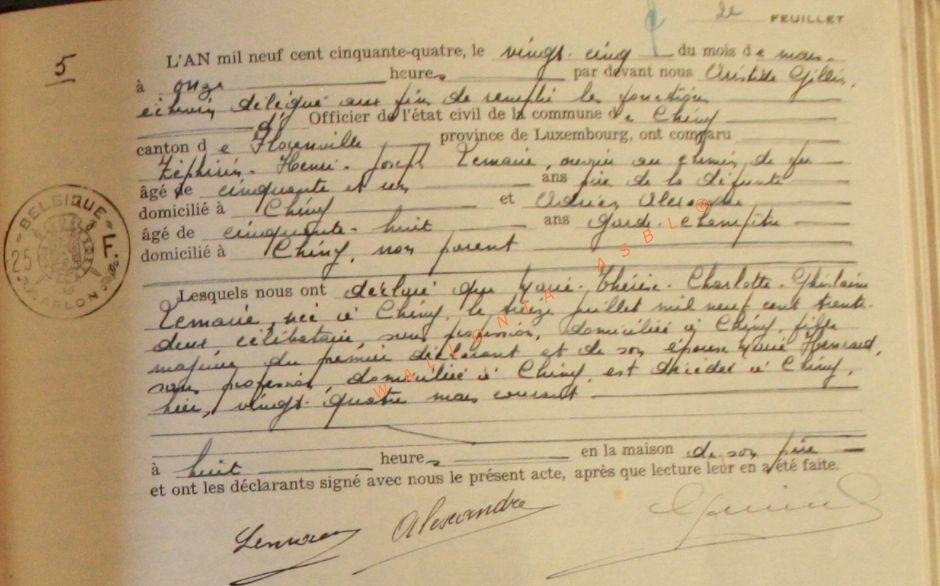 2e FEUILLET
5
L'AN mil neuf cent cinquante-quatre, le vingt-cinq du mois de mars
à onze heures par devant nous Aristide Gillis,
échevin délégué aux fins de remplir les fonctions
d' Officier de l'état civil de la commune de Chiny
canton de Florenville province de Luxembourg, ont comparu
Zéphirin-Henri-Joseph Lemaire, ouvrier au chemin de fer
âgé de cinquante et un ans père de la défunte
domicilié à Chiny et Adrien Alexandre
âgé de cinquante-huit ans garde-champêtre
domicilié à Chiny, non parent
Lesquels nous ont déclaré que Marie-Thérèse-Charlotte-Ghislaine
Lemaire, née à Chiny, le seize juillet mil neuf cent trente-
deux célibataire, sans profession, domiciliée à Chiny, fille
majeure du premier déclarant et de son épouse Marie
sans profession, domiciliée à Chiny, est décédée à Chiny,
hier, vingt-quatre mars courant.
à huit heures en la maison de son père
et ont les déclarants signé avec nous le présent acte, après que lecture leur en a été faite.
Alexandre
BELGIQUE
25 F
ARLON
WALLONIA ASBL ®